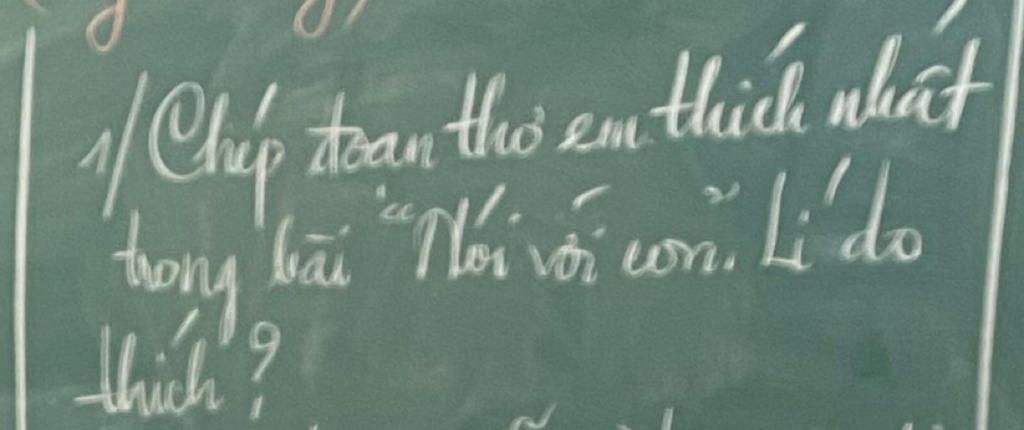 1/ Chép đoạn thơ em thích nhất
trong bài "Nói với con". Lí do
thích?